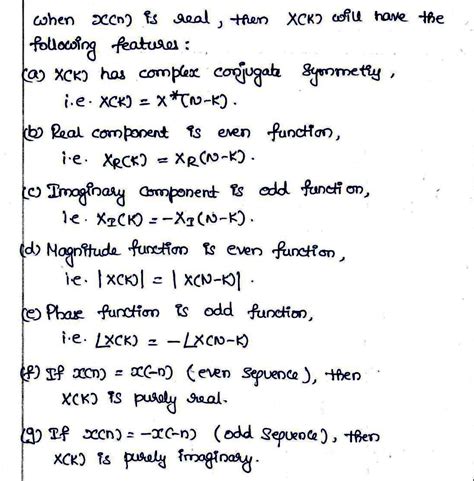 when x(n) is real, then X(K) will have the
following features :
(a) X(K) has complex conjugate symmetry,
i.e. X(K) = X*(N-K).
(b) Real component is even function,
i.e. XR(K) = XR(N-K).
(c) Imaginary component is odd function,
ie. XI(K) = -XI(N-K).
(d) Magnitude function is even function,
i.e. |X(K)| = |X(N-K)|.
(e) Phase function is odd function,
i.e. ∠X(K) = -∠X(N-K)
(f) If x(n) = x(-n) (even sequence), then
X(K) is purely real.
(g) If x(n) = -x(-n) (odd sequence), then
X(K) is purely imaginary.